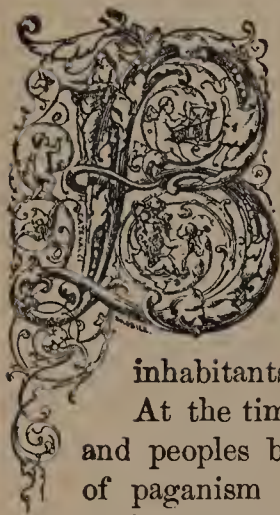 B
inhabitants
At the tim
and peoples b
of paganism